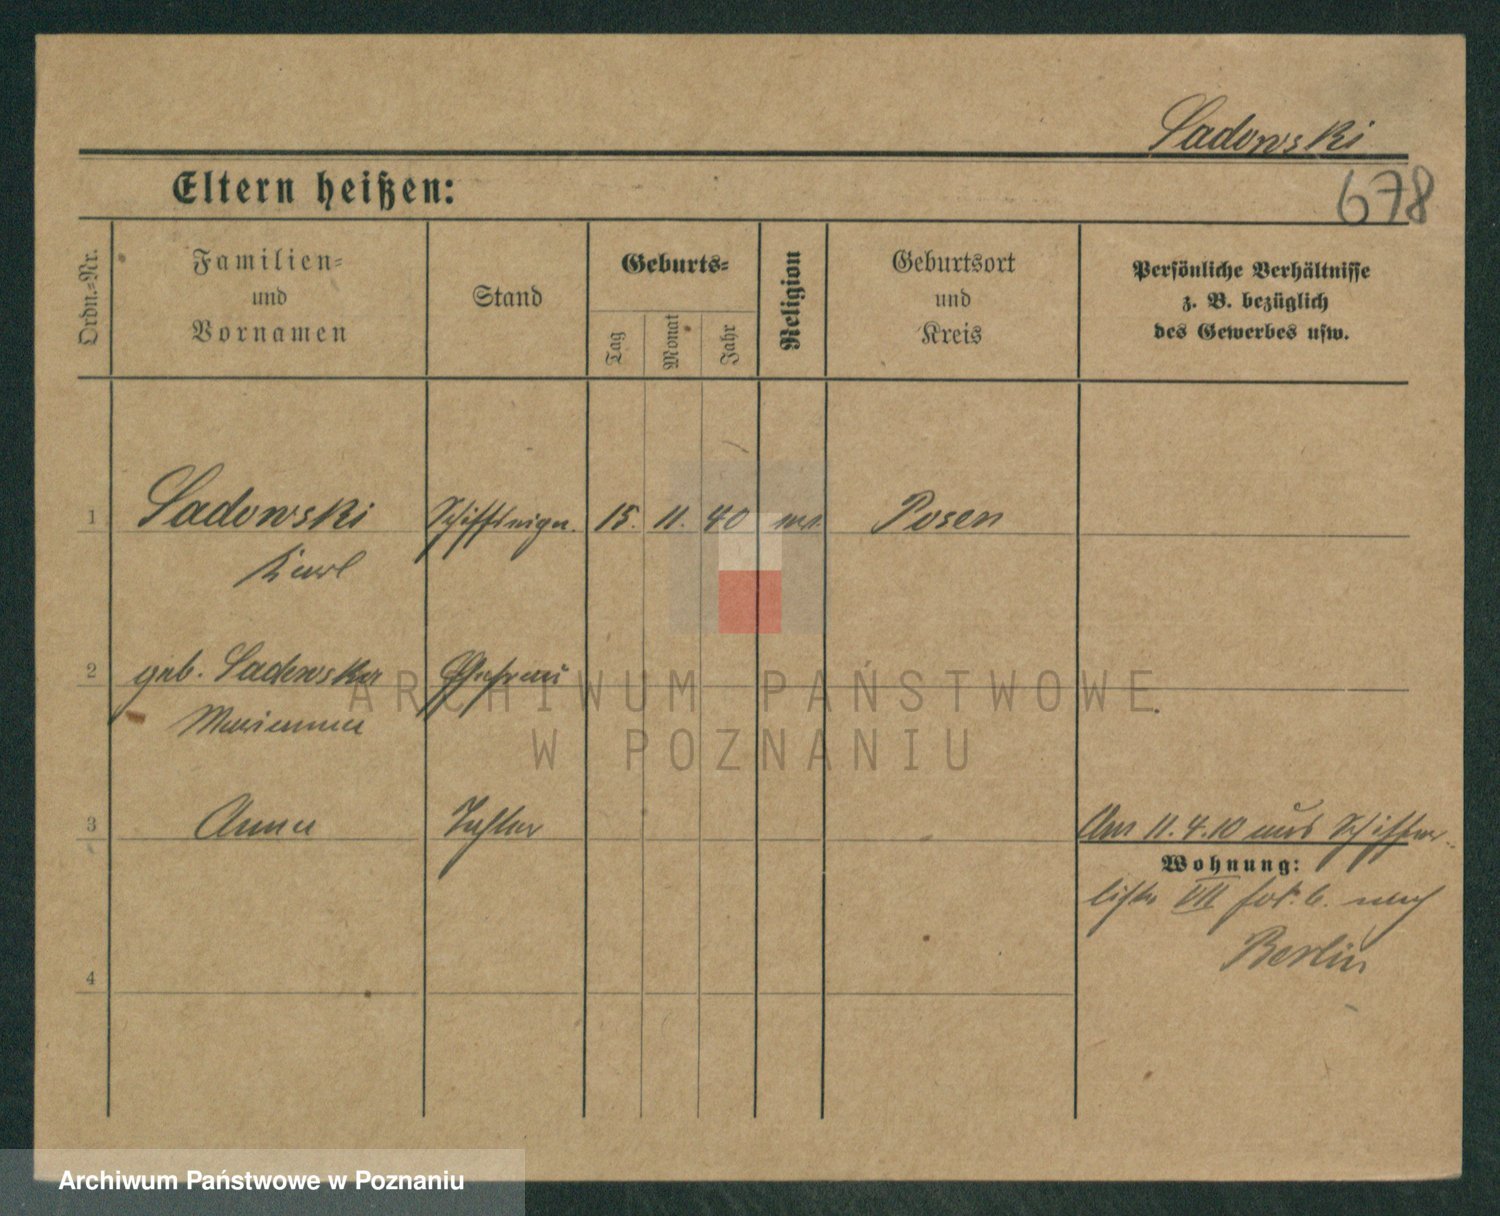 Sadowski
Eltern heißen:
678
Ordn.-Nr.
Familien-
und
Vornamen
Stand
Geburts-
Tag
Monat
Jahr
Religion
Geburtsort
und
Kreis
Persönliche Verhältnisse
z. B. bezüglich
des Gewerbes usw.
1 Sadowski 15. 11. 40 Posen
Karl
2 geb. Sadowska Ehefrau
Marianna
3 Anna Tochter Am 11.4.10 aus Schiffer-
Wohnung:
liste VII fol. 6. nach
Berlin
4
ARCHIWUM PAŃSTWOWE
W POZNANIU
Archiwum Państwowe w Poznaniu